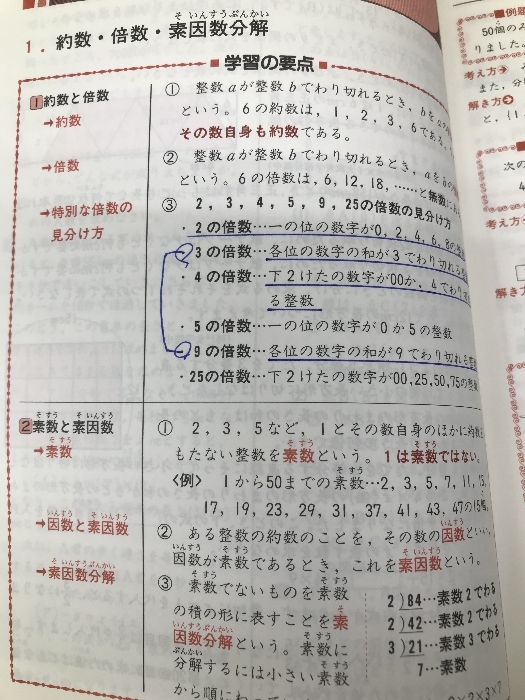 1．約数・倍数・素因数分解
そ いんすうぶんかい
■学習の要点■
1 約数と倍数
→約数
→倍数
→特別な倍数の
見分け方
① 整数aが整数bでわり切れるとき，bをaの
という。6の約数は，1，2，3，6である。
その数自身も約数である。
② 整数aが整数bでわり切れるとき，aをbの
という。6の倍数は，6，12，18，……と無数に
③ 2，3，4，5，9，25の倍数の見分け方
・2の倍数…一の位の数字が0，2，4，6，8の
・3の倍数…各位の数字の和が3でわり切れる
・4の倍数…下2けたの数字が00か，4でわり
る整数
・5の倍数…一の位の数字が0か5の整数
・9の倍数…各位の数字の和が9でわり切れる
・25の倍数…下2けたの数字が00,25,50,75の
2 素数と素因数
そ すう そ いんすう
→素数
そ すう
→因数と素因数
いんすう そ いんすう
→素因数分解
そ いんすうぶんかい
① 2，3，5など，1とその数自身のほかに約数を
もたない整数を素数という。1は素数ではない。
〈例〉 1から50までの素数…2，3，5，7，11，13，
17，19，23，29，31，37，41，43，47の15個
② ある整数の約数のことを，その数の因数といい，
因数が素数であるとき，これを素因数という。
③ 素数でないものを素数
の積の形に表すことを素
因数分解という。素数に
分解するには小さい素数
から順にわって
2)84…素数2でわる
2)42…素数2でわる
3)21…素数3でわる
7…素数
×2×3×7
■例題
50個のみ
りました
考え方→
また，分
解き方→
と，{1
次の
4
考え方→
解き方